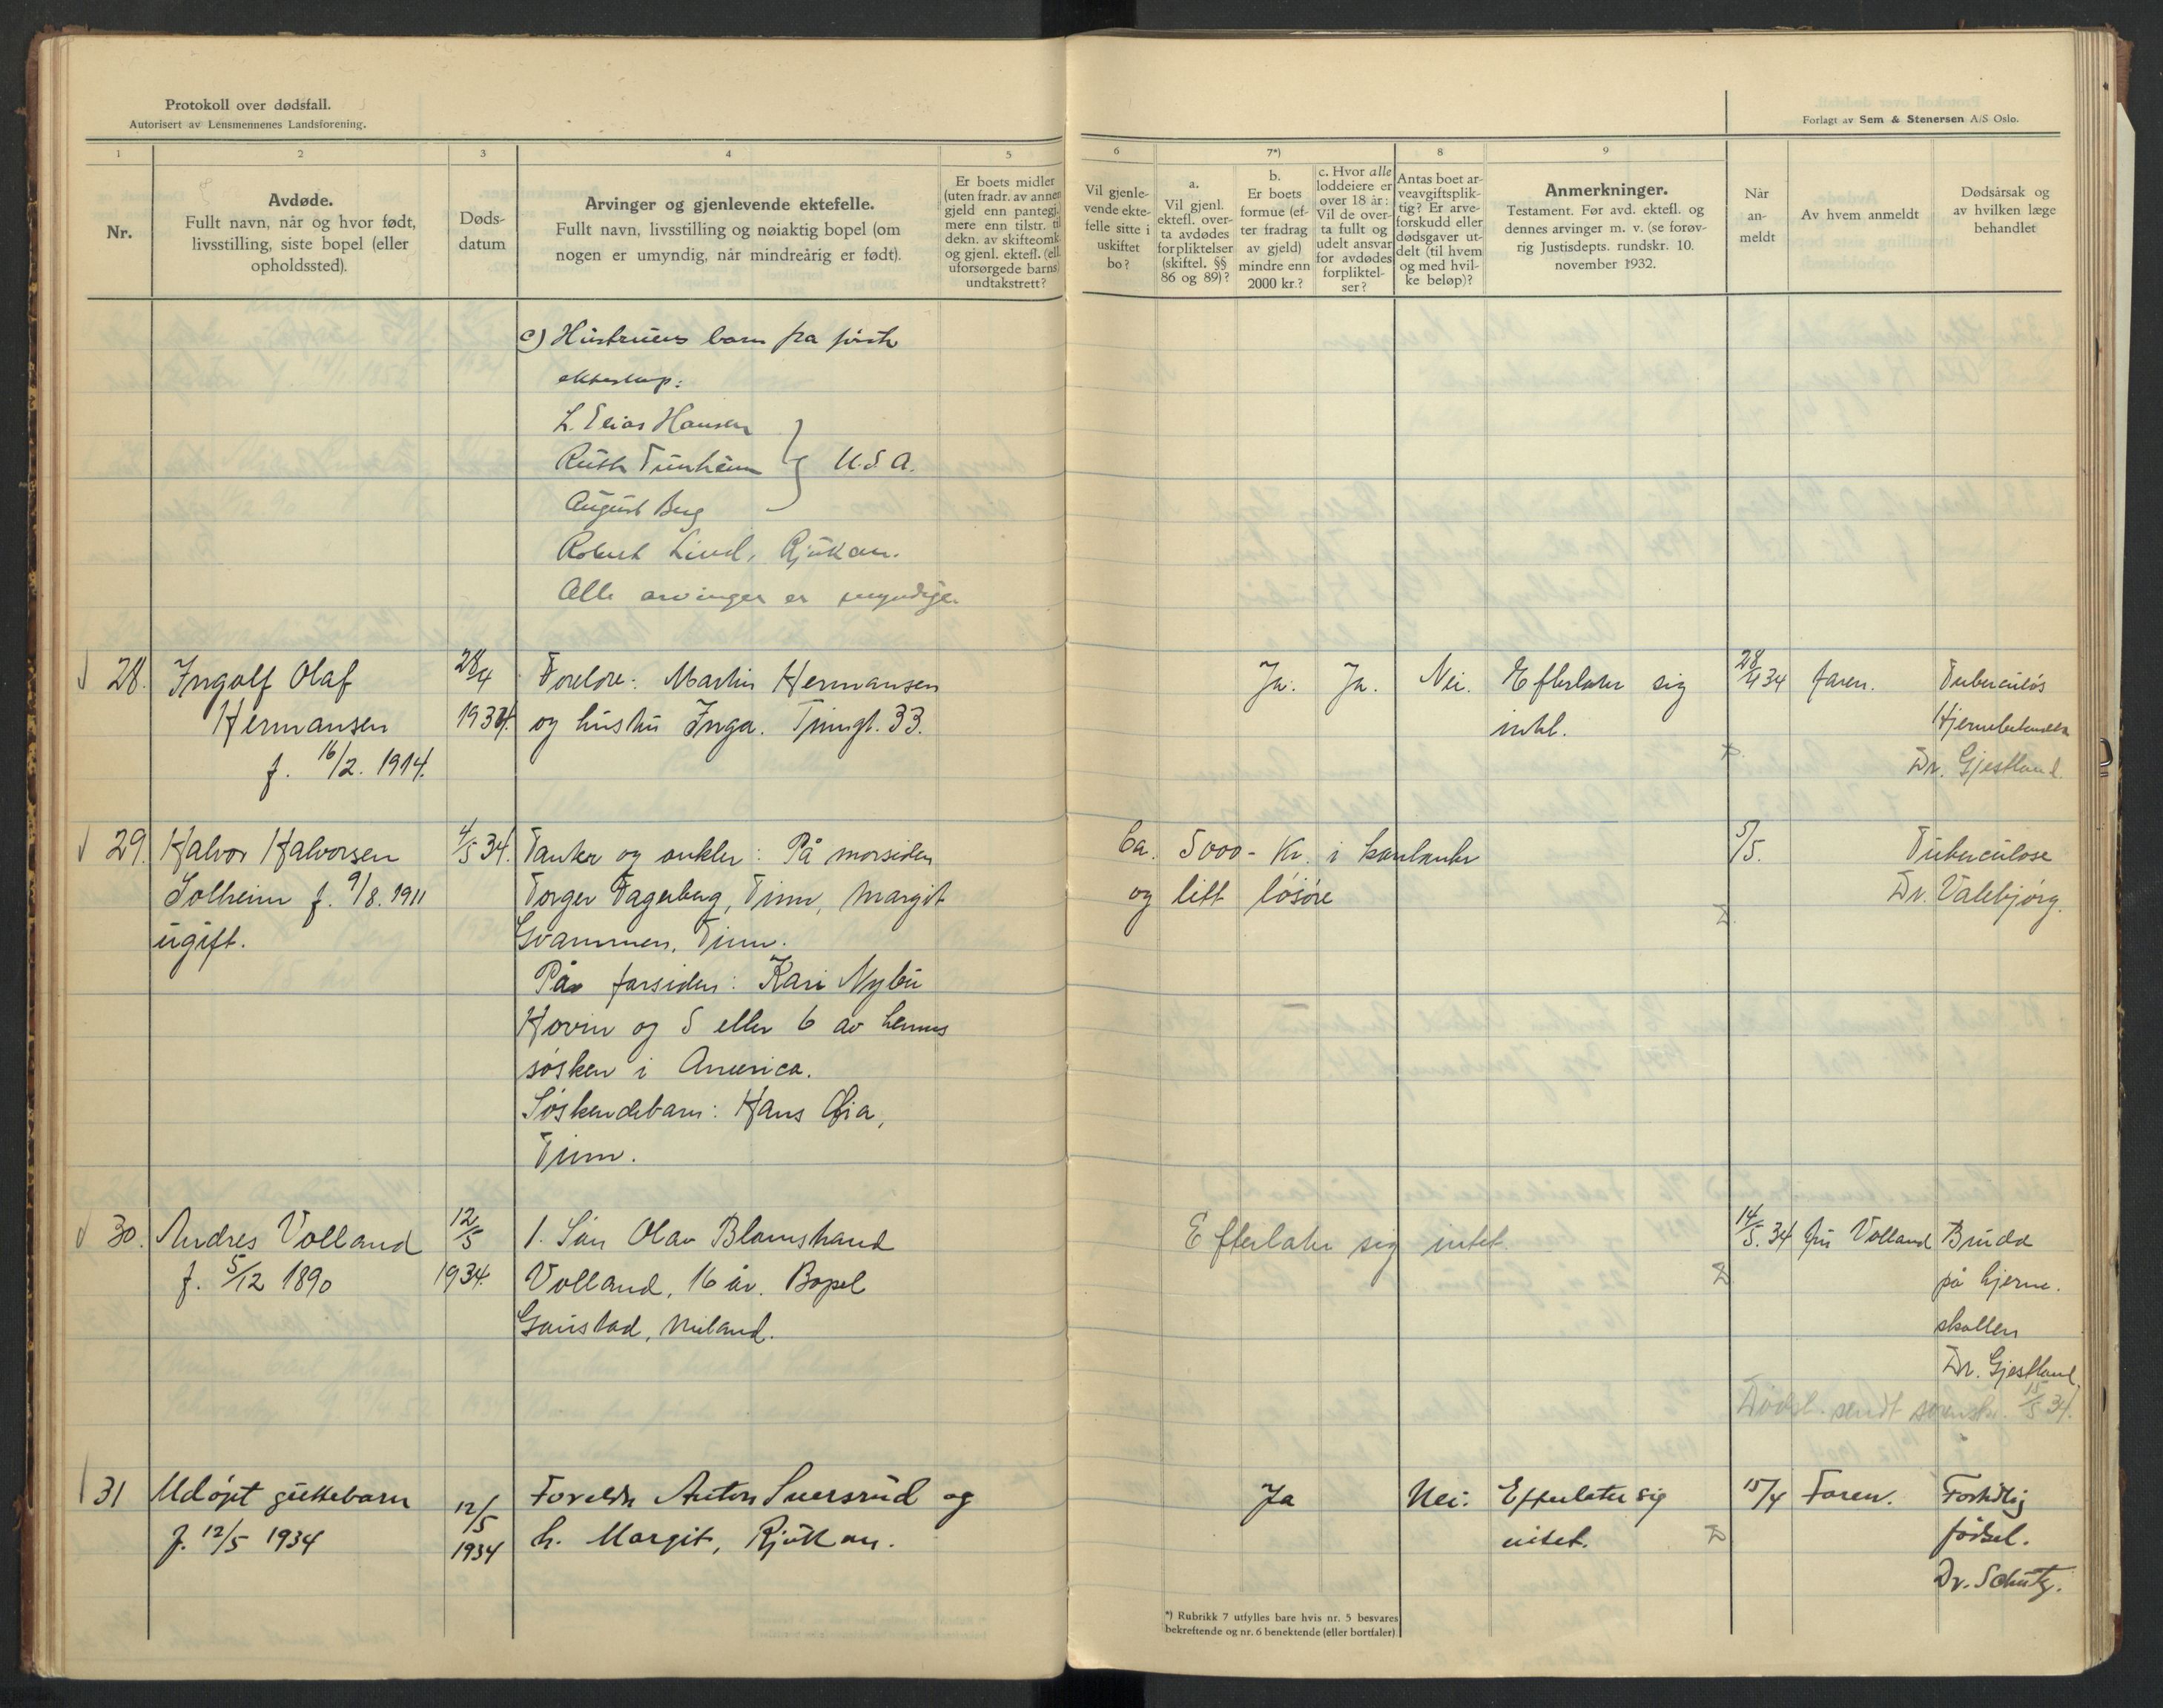 Protokoll over dødsfall.
Autorisert av Lensmennenes Landsforening.
Forlagt av Sem & Stenersen A/S Oslo.
1 2 3 4 5 6 7*) 8 9
Nr.
Avdøde.
Fullt navn, når og hvor født,
livsstilling, siste bopel (eller
opholdssted).
Døds-
datum
Arvinger og gjenlevende ektefelle.
Fullt navn, livsstilling og nøiaktig bopel (om
nogen er umyndig, når mindreårig er født).
Er boets midler
(uten fradr. av annen
gjeld enn pantegj.
mere enn tilstr. til
dekn. av skifteomk.
og gjenl. ektefl. (ell.
uforsørgede barns)
undtakstrett?
Vil gjenle-
vende ekte-
felle sitte i
uskiftet
bo?
a.
Vil gjenl.
ektefl. over-
ta avdødes
forpliktelser
(skiftel. §§
86 og 89)?
b.
Er boets
formue (ef-
ter fradrag
av gjeld)
mindre enn
2000 kr.?
c. Hvor alle
loddeiere er
over 18 år:
Vil de over-
ta fullt og
udelt ansvar
for avdødes
forpliktel-
ser?
Antas boet ar-
veavgiftsplik-
tig? Er arve-
forskudd eller
dødsgaver ut-
delt (til hvem
og med hvil-
ke beløp)?
Anmerkninger.
Testament. Før avd. ektefl. og
dennes arvinger m. v. (se forøv-
rig Justisdepts. rundskr. 10.
november 1932.
Når
an-
meldt
Av hvem anmeldt
Dødsårsak og
av hvilken læge
behandlet
c) Hustruens barn fra første
ekteskap:
L. Elias Hansen
Ruth Tunheim } U.S.A.
August Berg
Robert Lind, Rjukan.
Alle arvinger er myndige.
28. Ingolf Olaf
Hermansen
f. 16/2. 1914.
28/4
1934.
Foreldre: Martin Hermansen
og hustru Inga. Tinngt. 33.
Ja. Ja. Nei. Efterlater sig
intet.
28/4 34 faren. Tuberculøs
Hjernebetendelse
Dr. Gjestland.
29. Halvor Halvorsen
Solheim f. 9/8. 1911
ugift.
4/5 34.
Tanter og onkler: På morsiden
Torger Fagerberg, Tinn, Margit
Gvammen, Tinn.
På farsiden: Kari Nybu
Hovin og 5 eller 6 av hennes
søsken i America.
Søskendebarn: Hans Øia,
Tinn.
Ca. 5000- Kr. i kontanter
og litt løsøre
5/5. Tuberculose
Dr. Valebjørg.
30. Andres Volland
f. 5/12 1890
12/5
1934.
1. Søn Olav Blomstrand
Volland, 16 år. Bopel
Gaustad, Miland.
Efterlater sig intet.
14/5. 34 Volland Brudd
på hjerne.
skallen
Dr. Gjestland.
Dødsf. sendt sorenskr. 15/5 34.
31 Udøpt guttebarn
f. 12/5 1934
12/5
1934
Foreldre Anton Sversrud og
h. Margit, Rjukan.
Ja Nei. Efterlater sig
intet.
15/4 Faren. Fortidlig
fødsel.
Dr. Schutz.
*) Rubrikk 7 utfylles bare hvis nr. 5 besvares
bekreftende og nr. 6 benektende (eller bortfaler)